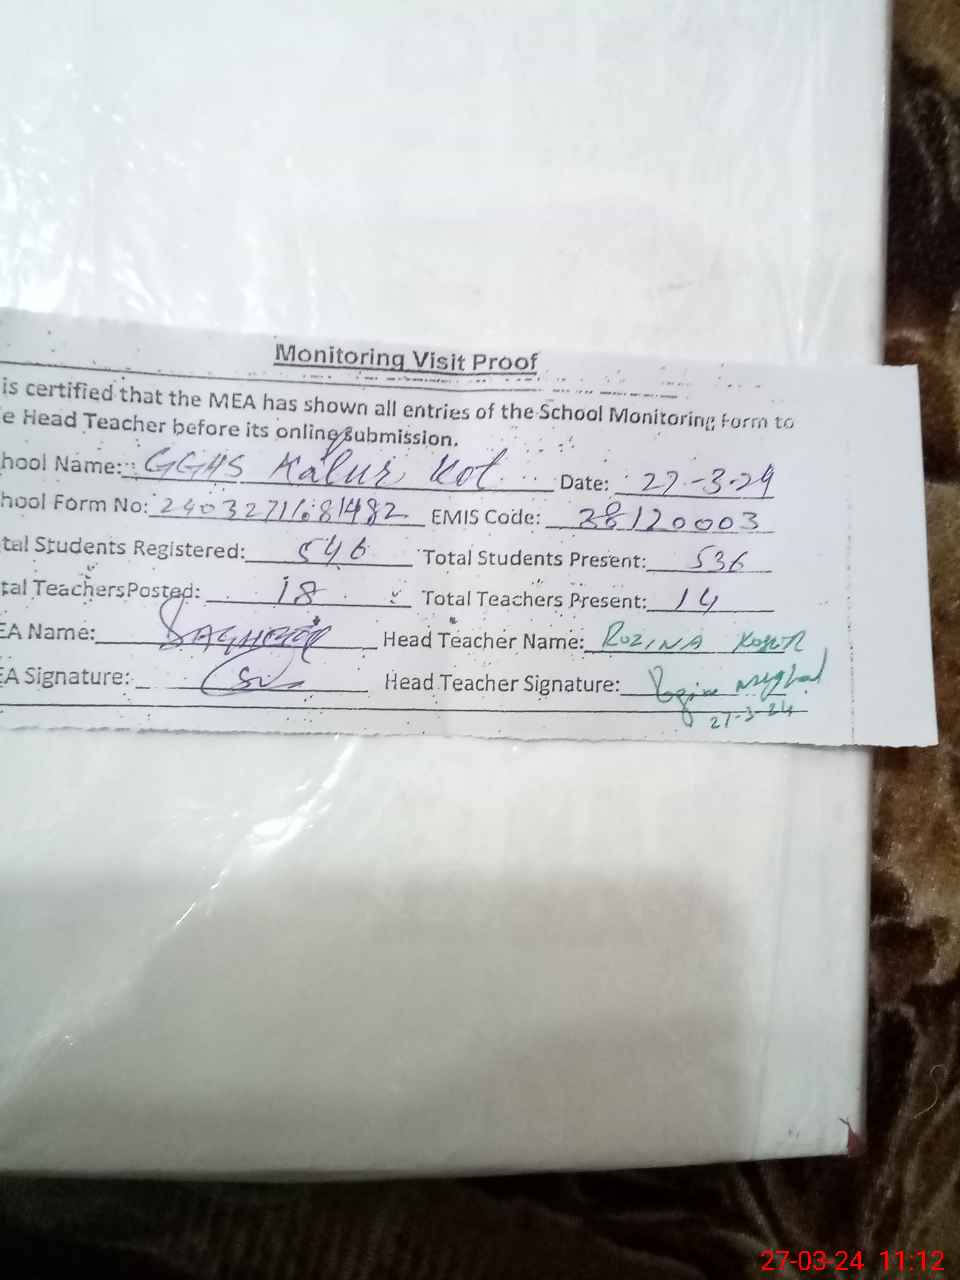 Monitoring Visit Proof
is certified that the MEA has shown all entries of the School Monitoring Form to
e Head Teacher before its online submission.
hool Name: GGHS Kalur Kot Date: 27-3-24
hool Form No: 2403271681482 EMIS Code: 38120003
tal Students Registered: 546 Total Students Present: 536
tal Teachers Posted: 18 Total Teachers Present: 14
EA Name: Head Teacher Name: ROZINA
EA Signature: Head Teacher Signature:
27-3-24
27-03-24 11:12